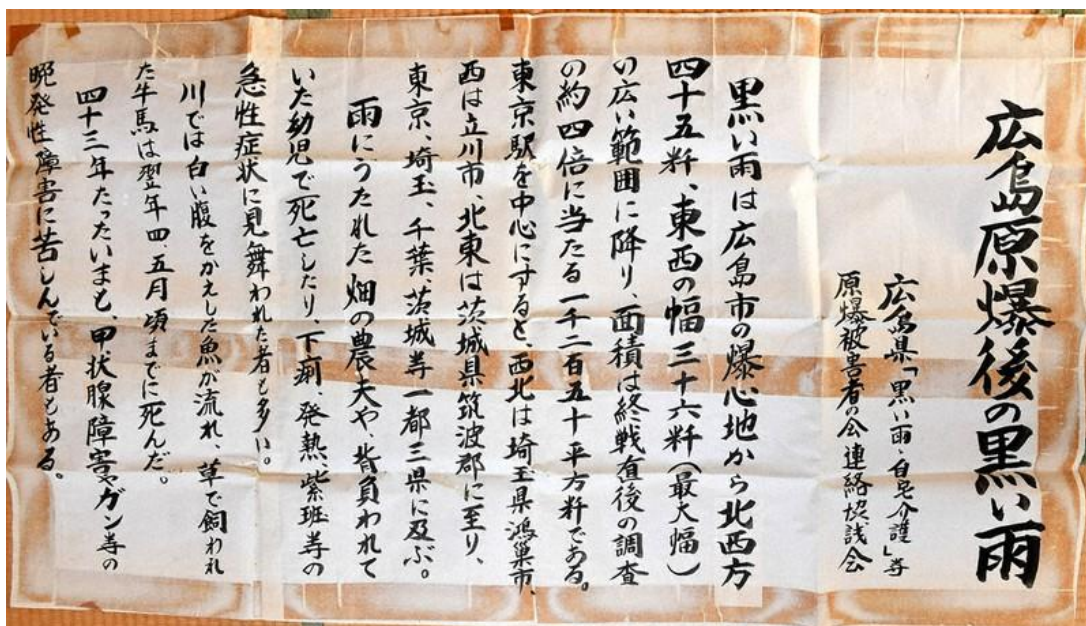 広島原爆後の黒い雨
広島県「黒い雨・自宅介護」等
原爆被害者の会連絡協議会
黒い雨は広島市の爆心地から北西方
四十五粁、東西の幅三十六粁(最大幅)
の広い範囲に降り、面積は終戦直後の調査
の約四倍に当たる一千二百五十平方粁である。
東京駅を中心にすると、西北は埼玉県鴻巣市、
西は立川市、北東は茨城県筑波郡に至り、
東京、埼玉、千葉、茨城等一都三県に及ぶ。
雨にうたれた畑の農夫や、背負われて
いた幼児で死亡したり、下痢、発熱、紫斑等の
急性症状に見舞われた者も多い。
川では白い腹をかえした魚が流れ、草で飼われ
た牛馬は翌年四、五月頃までに死んだ。
四十三年たったいまも、甲状腺障害やガン等の
晩発性障害に苦しんでいる者もある。